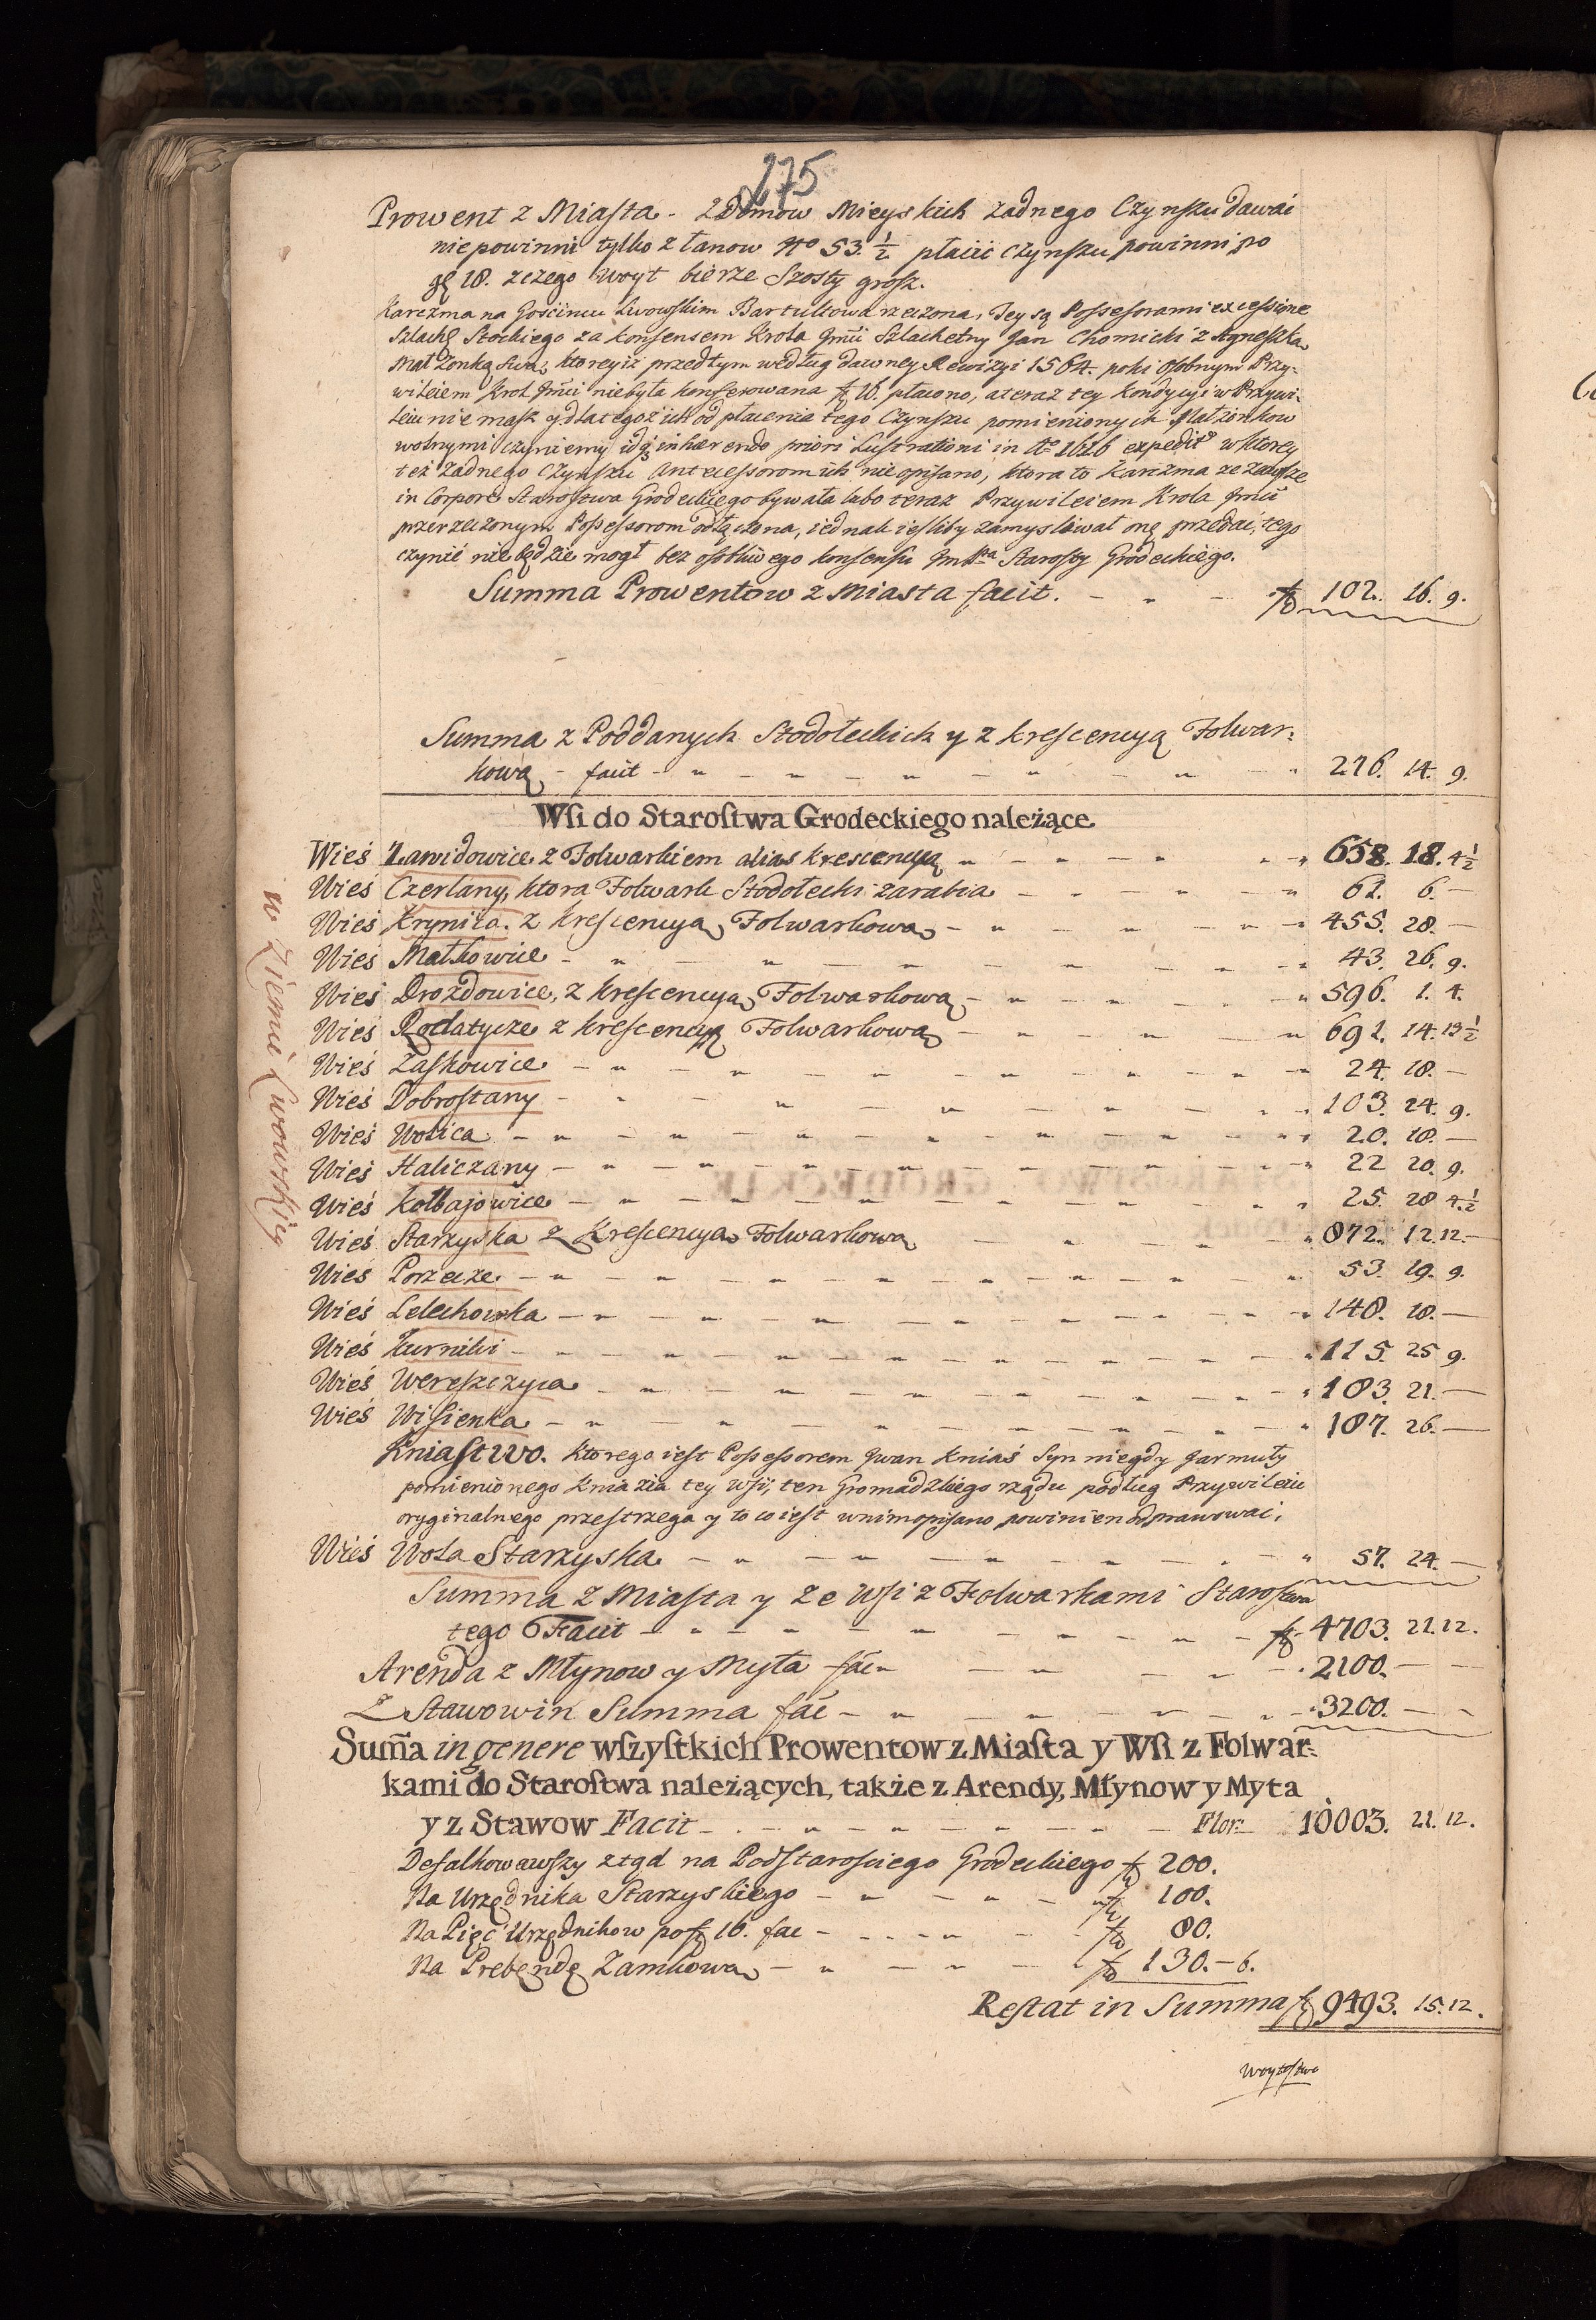 275
Prowent z Miasta - Z Domow Mieyskich żadnego Czynszu dawać
nie powinni tylko z łanow No 53. 1/2 płacić czynszu powinni po
gę 18. z czego Woyt bierze Szosty grosz.
Karczma na Gościncu Lwowskim Bartultowa rzeczona, Jey są Possessorami ex cessione
Szlachę Stockiego za konsensem Krola Jmci Szlachetny Jan Chomicki z Agneszką
Małżonką swą, ktorey iż przedtym według dawney Rewizyi 1564. poki osobnym Przy-
wileiem Krol Jmci nie była konferowana f 16. płacono, a teraz tey Kondycyi w Przywi-
leiu nie masz y dla tego ż ich od płacenia tego Czynszu pomienionych Małżonkow
wolnymi czyniemy idq inhærendo priori Lustrationi in Ao 1616 expedit w ktorey
też żadnego Czynszu Antecessorom ich nie opisano, ktora to Karczma ze zawsze
in Corpore Starostwa Grodeckiego bywała lubo teraz Przywileiem Krola Jmci
przerzeczonym Possessorom odłączona, iednak iesliby zamyslował onę przedać, tego
czynić nie będzie mogł bez osobliwego konsensu Jm Pna Starosty Grodeckiego.
Summa Prowentow z Miasta facit. - f 102. 16. 9.
Summa z Poddanych Stodołeckich y z krescencyą Folwar-
kową - facit - 276. 14. 9.
Wsi do Starostwa Grodeckiego należące
Wieś Zawidowice z Folwarkiem alias krescencyą 658. 18. 4 1/2
Wieś Czerlany, ktora Folwark Stodołecki zarabia 61. 6. -
Wieś Krynica. z krescencyą Folwarkową 455. 28. -
Wieś Małkowice 43. 26. 9.
Wieś Drozdowice, z krescencyą Folwarkową 596. 1. 4.
Wieś Rodatycze z krescencyą Folwarkową 691. 14. 13 1/2
Wieś Zaskowice 24. 18. -
Wieś Dobrostany 103. 24. 9.
Wieś Wolica 20. 18. -
Wieś Haliczany 22 20. 9.
Wieś Kołbajowice 25. 28 4. 1/2
Wieś Starzyska z Krescencyą Folwarkową 872. 12. 12. -
Wieś Porzecze 53. 19. 9.
Wieś Lelechowka 148. 18. -
Wieś Kurniki 115. 25 9.
Wieś Wereszczyca 183. 21. -
Wieś Wisienka 187. 26. -
w Ziemi Lwowskiey
Kniastwo. Ktorego iest Possessorem Jwan Kniaś Syn niegdy Jarmuły
pomienionego Kniazia tey Wsi, ten Gromadzkiego rządu podług Przywileiu
oryginalnego przestrzega y to co iest w nim opisano powinien odprawować,
Wieś Wola Starzyska 57. 24. -
Summa z Miasta y ze Wsi z Folwarkami Starostwa
tego Facit - f 4703. 21. 12.
Arenda z Młynow y Myta fac 2100. - -
Z Stawow in Summa fac - 3200. - -
Sum̃a in genere wszystkich Prowentow z Miasta y Wsi z Folwar-
kami do Starostwa należących, także z Arendy, Młynow y Myta
y z Stawow Facit - Flor: 10003. 21. 12.
Defalkowawszy ztąd na Podstarosciego Grodeckiego f 200.
Na Urzędnika Starzyskiego - f 100.
Na Pięć Urzędnikow po f 16. fac - f 80.
Na Prebendę Zamkową - f 130. - 6.
Restat in Summa f 9493. 15. 12.
Woytostwo